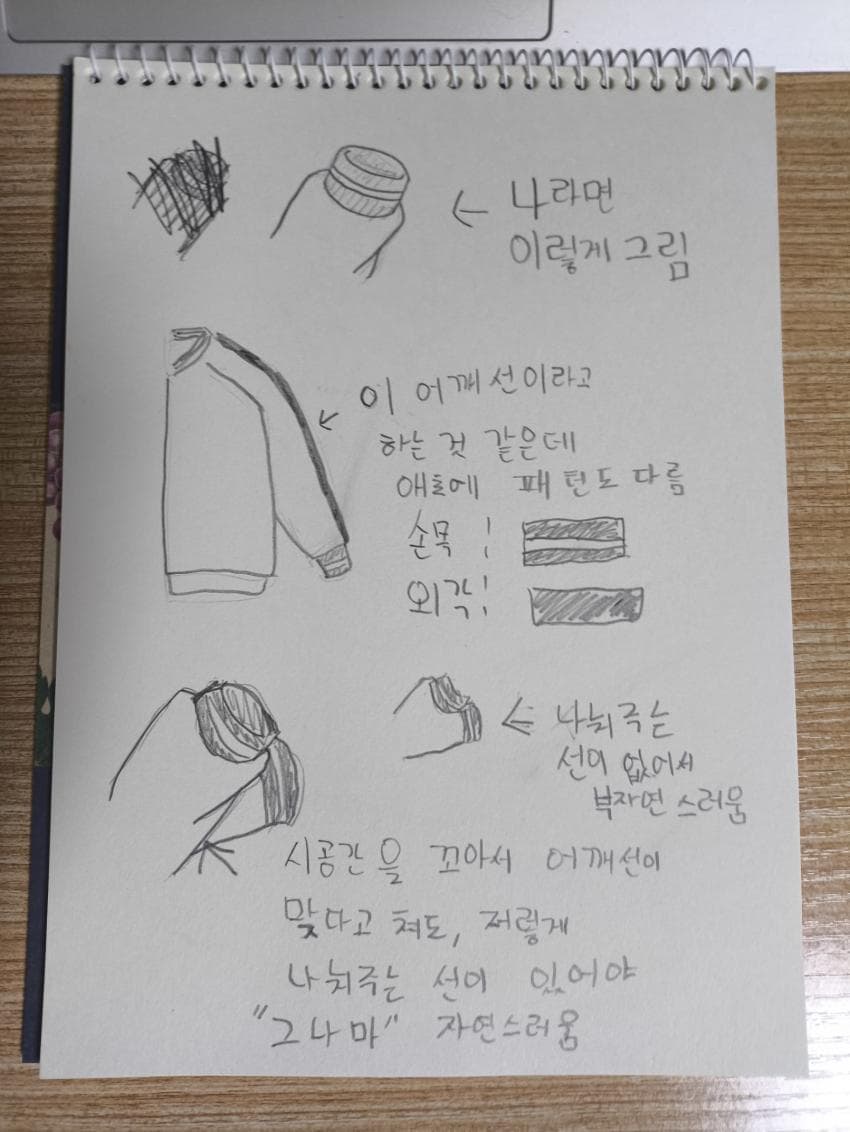 나라면
이렇게 그림
이 어깨 선이라고
하는 것 같은데
애초에 패턴도 다름
손목!
외각!
나눠주는
선이 없어서
부자연스러움
시공간을 꼬아서 어깨선이
맞다고 쳐도, 저렇게
나눠주는 선이 있어야
"그나마" 자연스러움